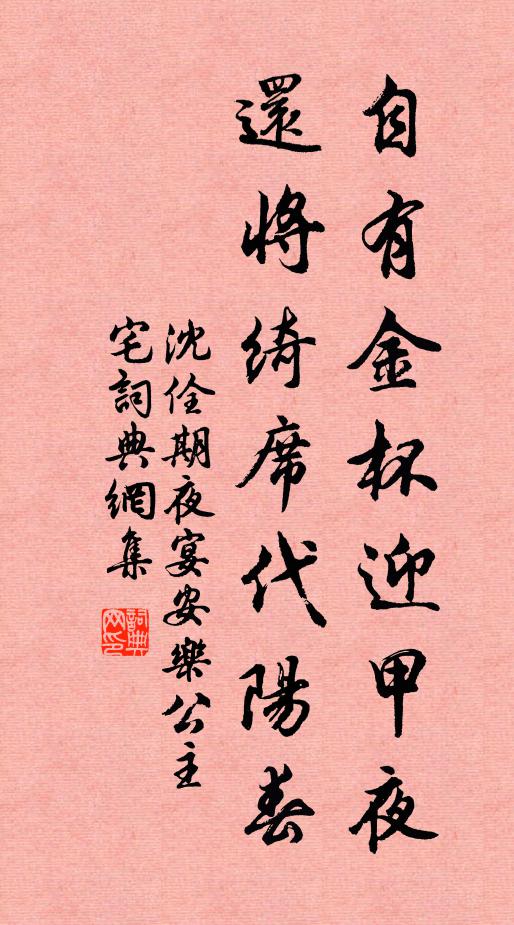 自有金杯迎甲夜
還將綺席代陽春
沈佺期夜宴安樂公主
宅詞典網集
詞典
网印